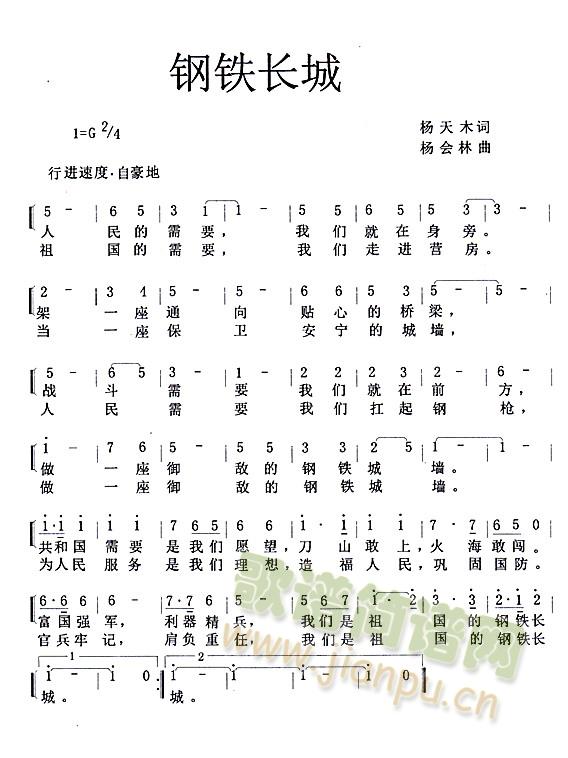 钢铁长城
1=G 2/4
杨天木词
杨会林曲
行进速度·自豪地
5 - | 6 5 | 3 1 | 1 - | 5 5 | 6 5 | 5 3 | 3 - |
人 民的 需要， 我们 就在 身 旁。
祖 国的 需要， 我们 走进 营 房。
2 - | 3 4 | 5 - | 2 - | 6 6 | 5 3 | 5 - | 5 - |
架 一座 通 向 贴心 的桥 梁，
当 一座 保 卫 安宁 的城 墙，
5 - | 6 5 | 3 - | 1 - | 2 2 | 2 3 | 2 - | 6 - |
战 斗 需 要 我们 就在 前 方，
人 民 需 要 我们 扛起 钢 枪，
i - | 7 6 | 5 - | 5 - | 3 3 | 2 2 | i - | i - |
做 一座 御 敌的 钢铁 城 墙。
做 一座 御 敌的 钢铁 城 墙。
i·i i | 2 2 | 7 6 5 | 6 6 | i · i | i i | 7 · 7 | 6 5 0 |
共和国 需要 是我们 愿望，刀 山敢上，火 海敢闯。
为人民 服务 是我们 理想，造 福人民，巩固 国防。
6·6 6 | 6 6 | 7·7 6 | 7 7 | 5 6 7 | i · 2 | 3 · 3 | 2 1 2 |
富国强军， 利器精兵，我们是祖 国 的钢铁长
官兵牢记， 肩负重任，我们是祖 国 的钢铁长
1 2
i - | i 0 :| i - | i - | i - | i 0 ||
城。 城。
歌谱简谱网
www.jianpu.cn